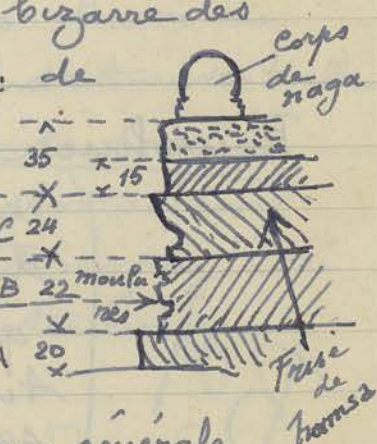 bizarre des
de
corps
de
naga
35
15
C 24
B 22
moulu
res
A 20
Frise
de
hamsa
générale